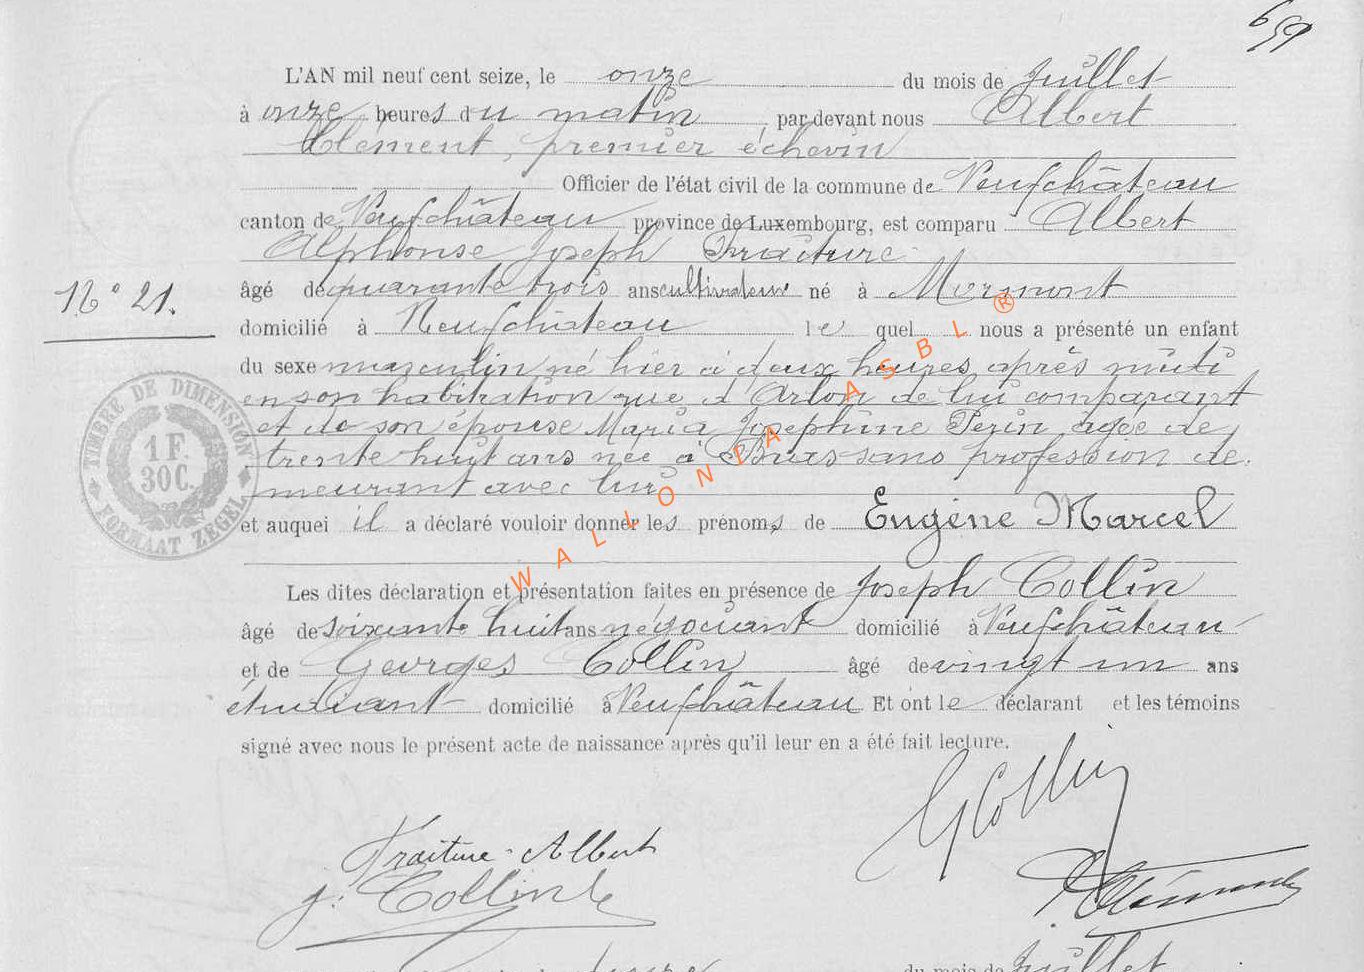 659
L'AN mil neuf cent seize, le onze du mois de Juillet
à onze heures du matin par devant nous Albert
Clément, premier échevin
Officier de l'état civil de la commune de Neufchâteau
canton de Neufchâteau province de Luxembourg, est comparu Albert
Alphonse Joseph Fraiture
N° 21.
âgé de quarante trois ans cultivateur né à Mormont
domicilié à Neufchâteau le quel nous a présenté un enfant
du sexe masculin né hier à deux heures après midi
en son habitation rue d'Arlon de lui comparant
et de son épouse Maria Joséphine Perin âgée de
trente huit ans née à Bras sans profession de
meurant avec lui
et auquel il a déclaré vouloir donner les prénoms de Eugène Marcel
TIMBRE DE DIMENSION
1 F.
30 C.
FORMAAT ZEGEL
WALLONIA ASBL ®
Les dites déclaration et présentation faites en présence de Joseph Collin
âgé de soixante huit ans négociant domicilié à Neufchâteau
et de Georges Collin âgé de vingt un ans
étudiant domicilié à Neufchâteau Et ont le déclarant et les témoins
signé avec nous le présent acte de naissance après qu'il leur en a été fait lecture.
G Collin
Fraiture Albert
J. Collin
A Clément
du mois de Juillet